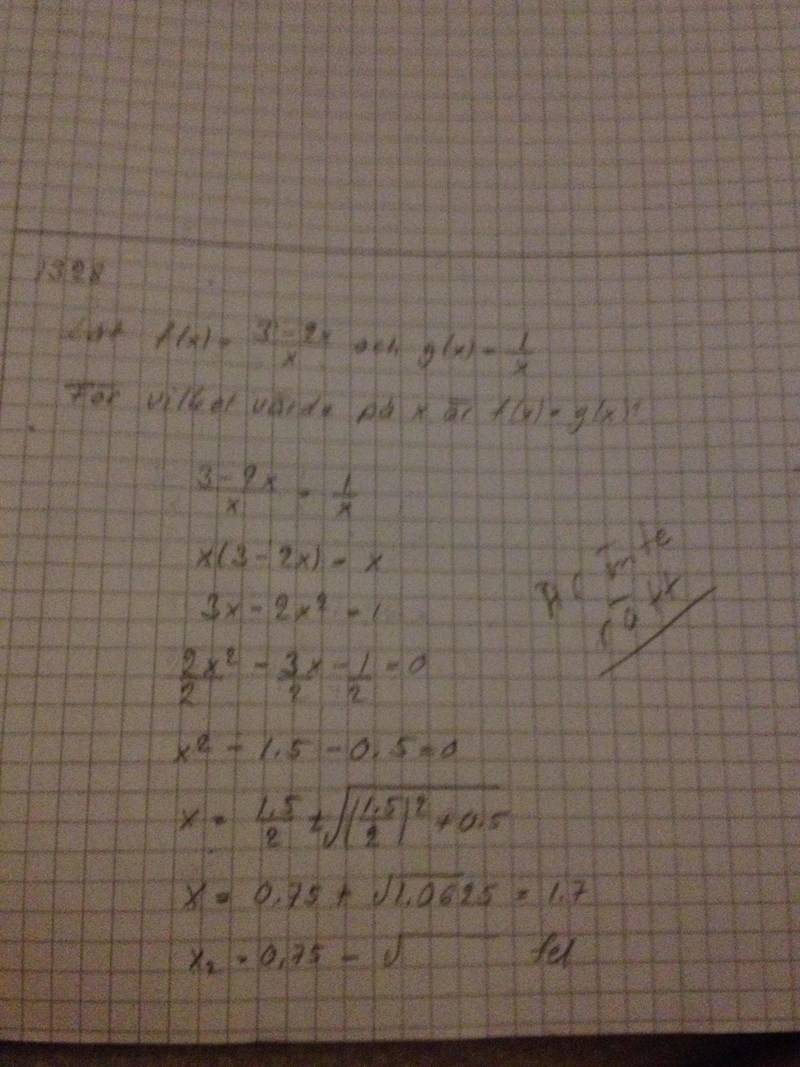 1328
Låt f(x) = 3-2x/x och g(x) = 1/x
För vilket värde på x är f(x) = g(x)?
3-2x/x = 1/x
x(3-2x) = x
3x - 2x² = 1
2x²/2 - 3x/2 - 1/2 = 0
x² - 1.5 - 0.5 = 0
x = 1.5/2 ± √(1.5/2)² + 0.5
x = 0.75 + √1.0625 = 1.7
x₂ = 0.75 - √ fel
Är inte rätt